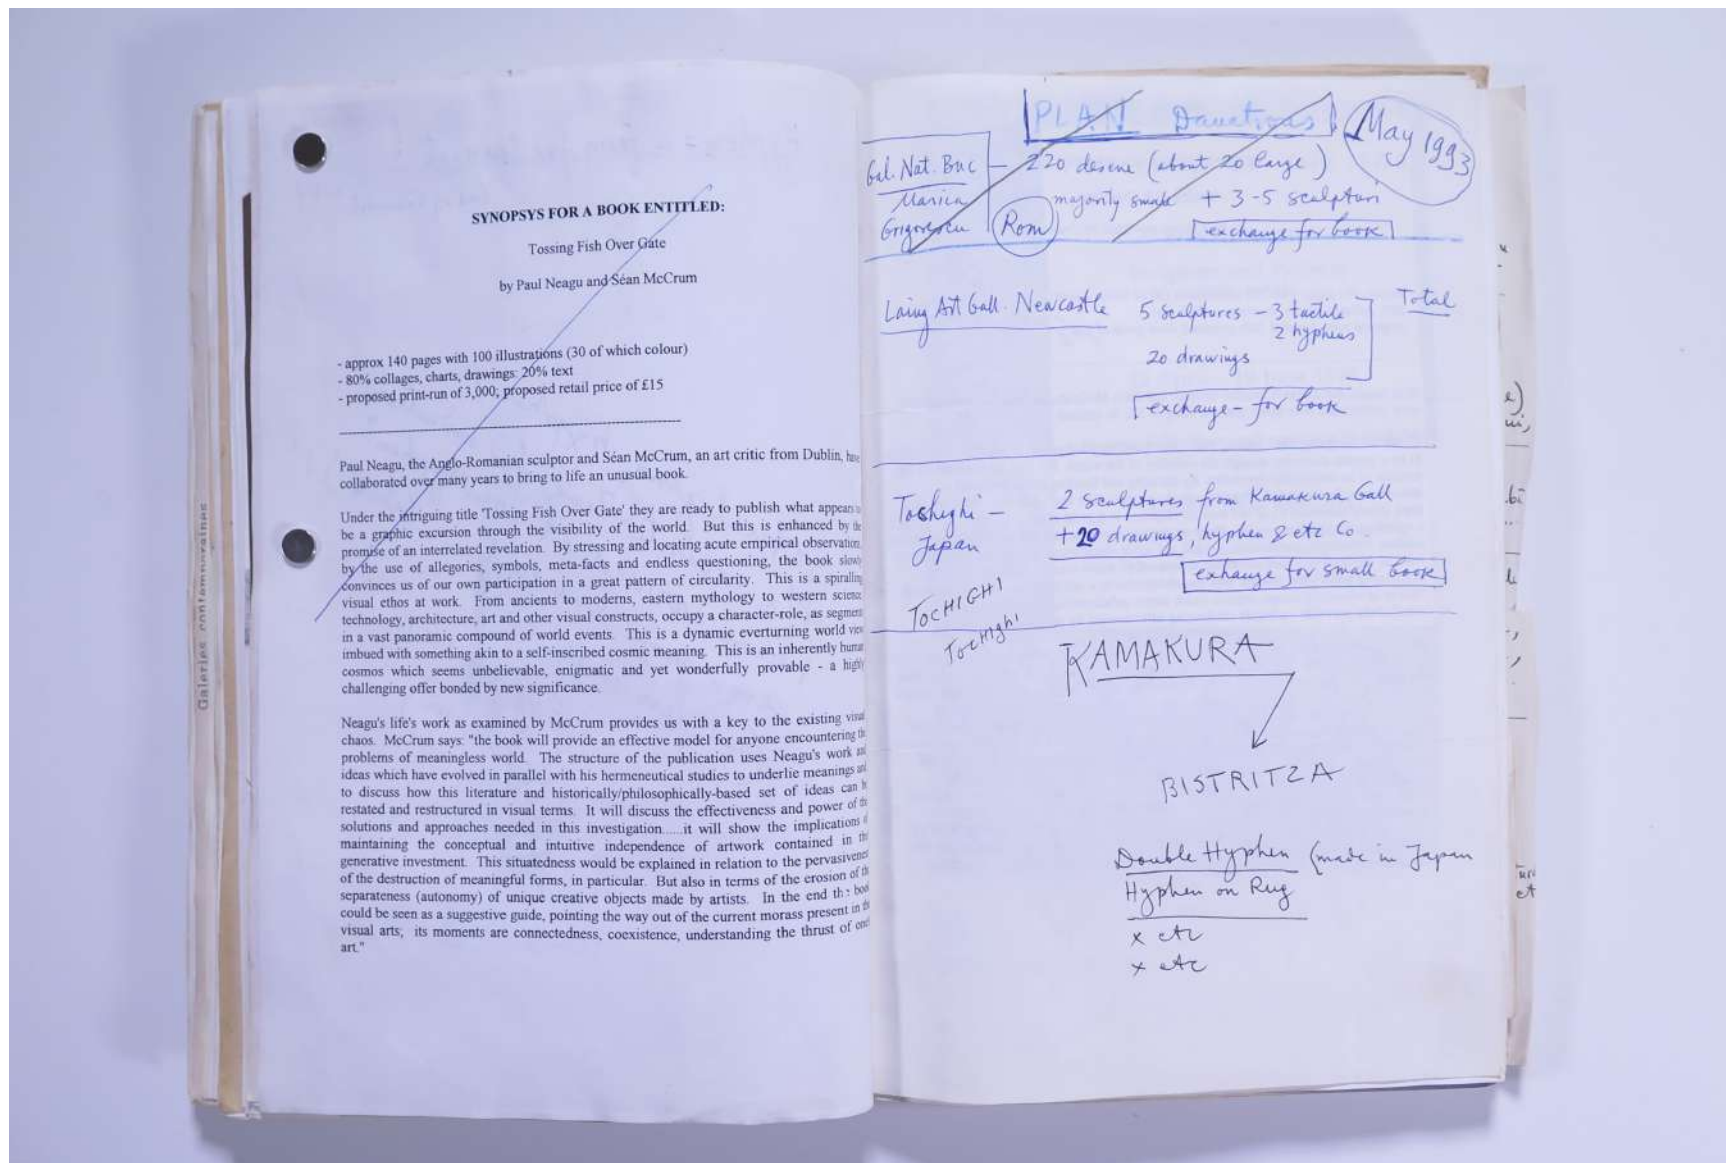 SYNOPSYS FOR A BOOK ENTITLED:
Tossing Fish Over Gate
by Paul Neagu and Séan McCrum
- approx 140 pages with 100 illustrations (30 of which colour)
- 80% collages, charts, drawings: 20% text
- proposed print-run of 3,000; proposed retail price of £15
Paul Neagu, the Anglo-Romanian sculptor and Séan McCrum, an art critic from Dublin, have
collaborated over many years to bring to life an unusual book.
Under the intriguing title 'Tossing Fish Over Gate' they are ready to publish what appears
be a graphic excursion through the visibility of the world. But this is enhanced by the
promise of an interrelated revelation. By stressing and locating acute empirical observation
by the use of allegories, symbols, meta-facts and endless questioning, the book slowly
convinces us of our own participation in a great pattern of circularity. This is a spiralling
visual ethos at work. From ancients to moderns, eastern mythology to western science
technology, architecture, art and other visual constructs, occupy a character-role, as segment
in a vast panoramic compound of world events. This is a dynamic everturning world view
imbued with something akin to a self-inscribed cosmic meaning. This is an inherently human
cosmos which seems unbelievable, enigmatic and yet wonderfully provable - a highly
challenging offer bonded by new significance.
Neagu's life's work as examined by McCrum provides us with a key to the existing visual
chaos. McCrum says: "the book will provide an effective model for anyone encountering the
problems of meaningless world. The structure of the publication uses Neagu's work and
ideas which have evolved in parallel with his hermeneutical studies to underlie meanings and
to discuss how this literature and historically/philosophically-based set of ideas can b
restated and restructured in visual terms. It will discuss the effectiveness and power of the
solutions and approaches needed in this investigation.....it will show the implications
maintaining the conceptual and intuitive independence of artwork contained in the
generative investment. This situatedness would be explained in relation to the pervasivenes
of the destruction of meaningful forms, in particular. But also in terms of the erosion of th
separateness (autonomy) of unique creative objects made by artists. In the end the boo
could be seen as a suggestive guide, pointing the way out of the current morass present in the
visual arts; its moments are connectedness, coexistence, understanding the thrust of
art."
Galeries contemporaines
PLAN Danations May 1993
Gal. Nat. Buc — 220 desene (about 20 large)
Marica majority small + 3-5 sculpturi
Grigorescu Rom exchange for book
Laing Art Gall. Newcastle 5 sculptures - 3 tactile Total
2 hyphens
20 drawings
exchange - for book
Toshighi - 2 sculptures from Kamakura Gall
Japan +20 drawings, hyphen & etc Co.
exhange for small book
TocHIGHI
TocHighi
KAMAKURA
BISTRITZA
Double Hyphen (made in Japan
Hyphen on Rug
x etc
x etc